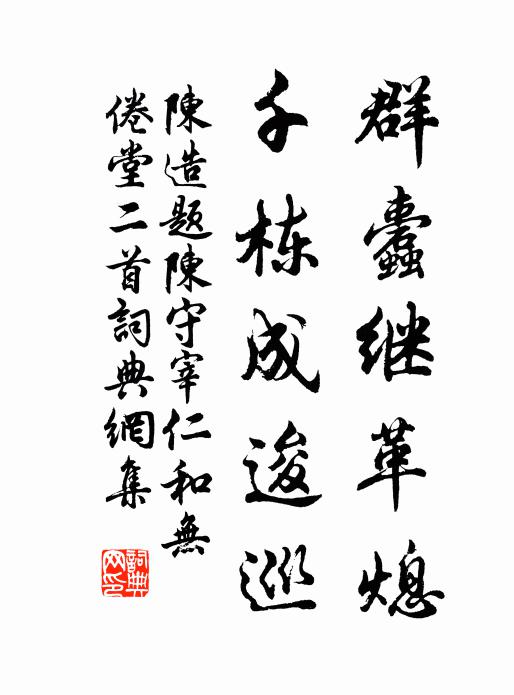 群蠹继革熄
千栋成逡巡
陳造題陳守宰仁和無
倦堂二首詞典網集
詞典
网印